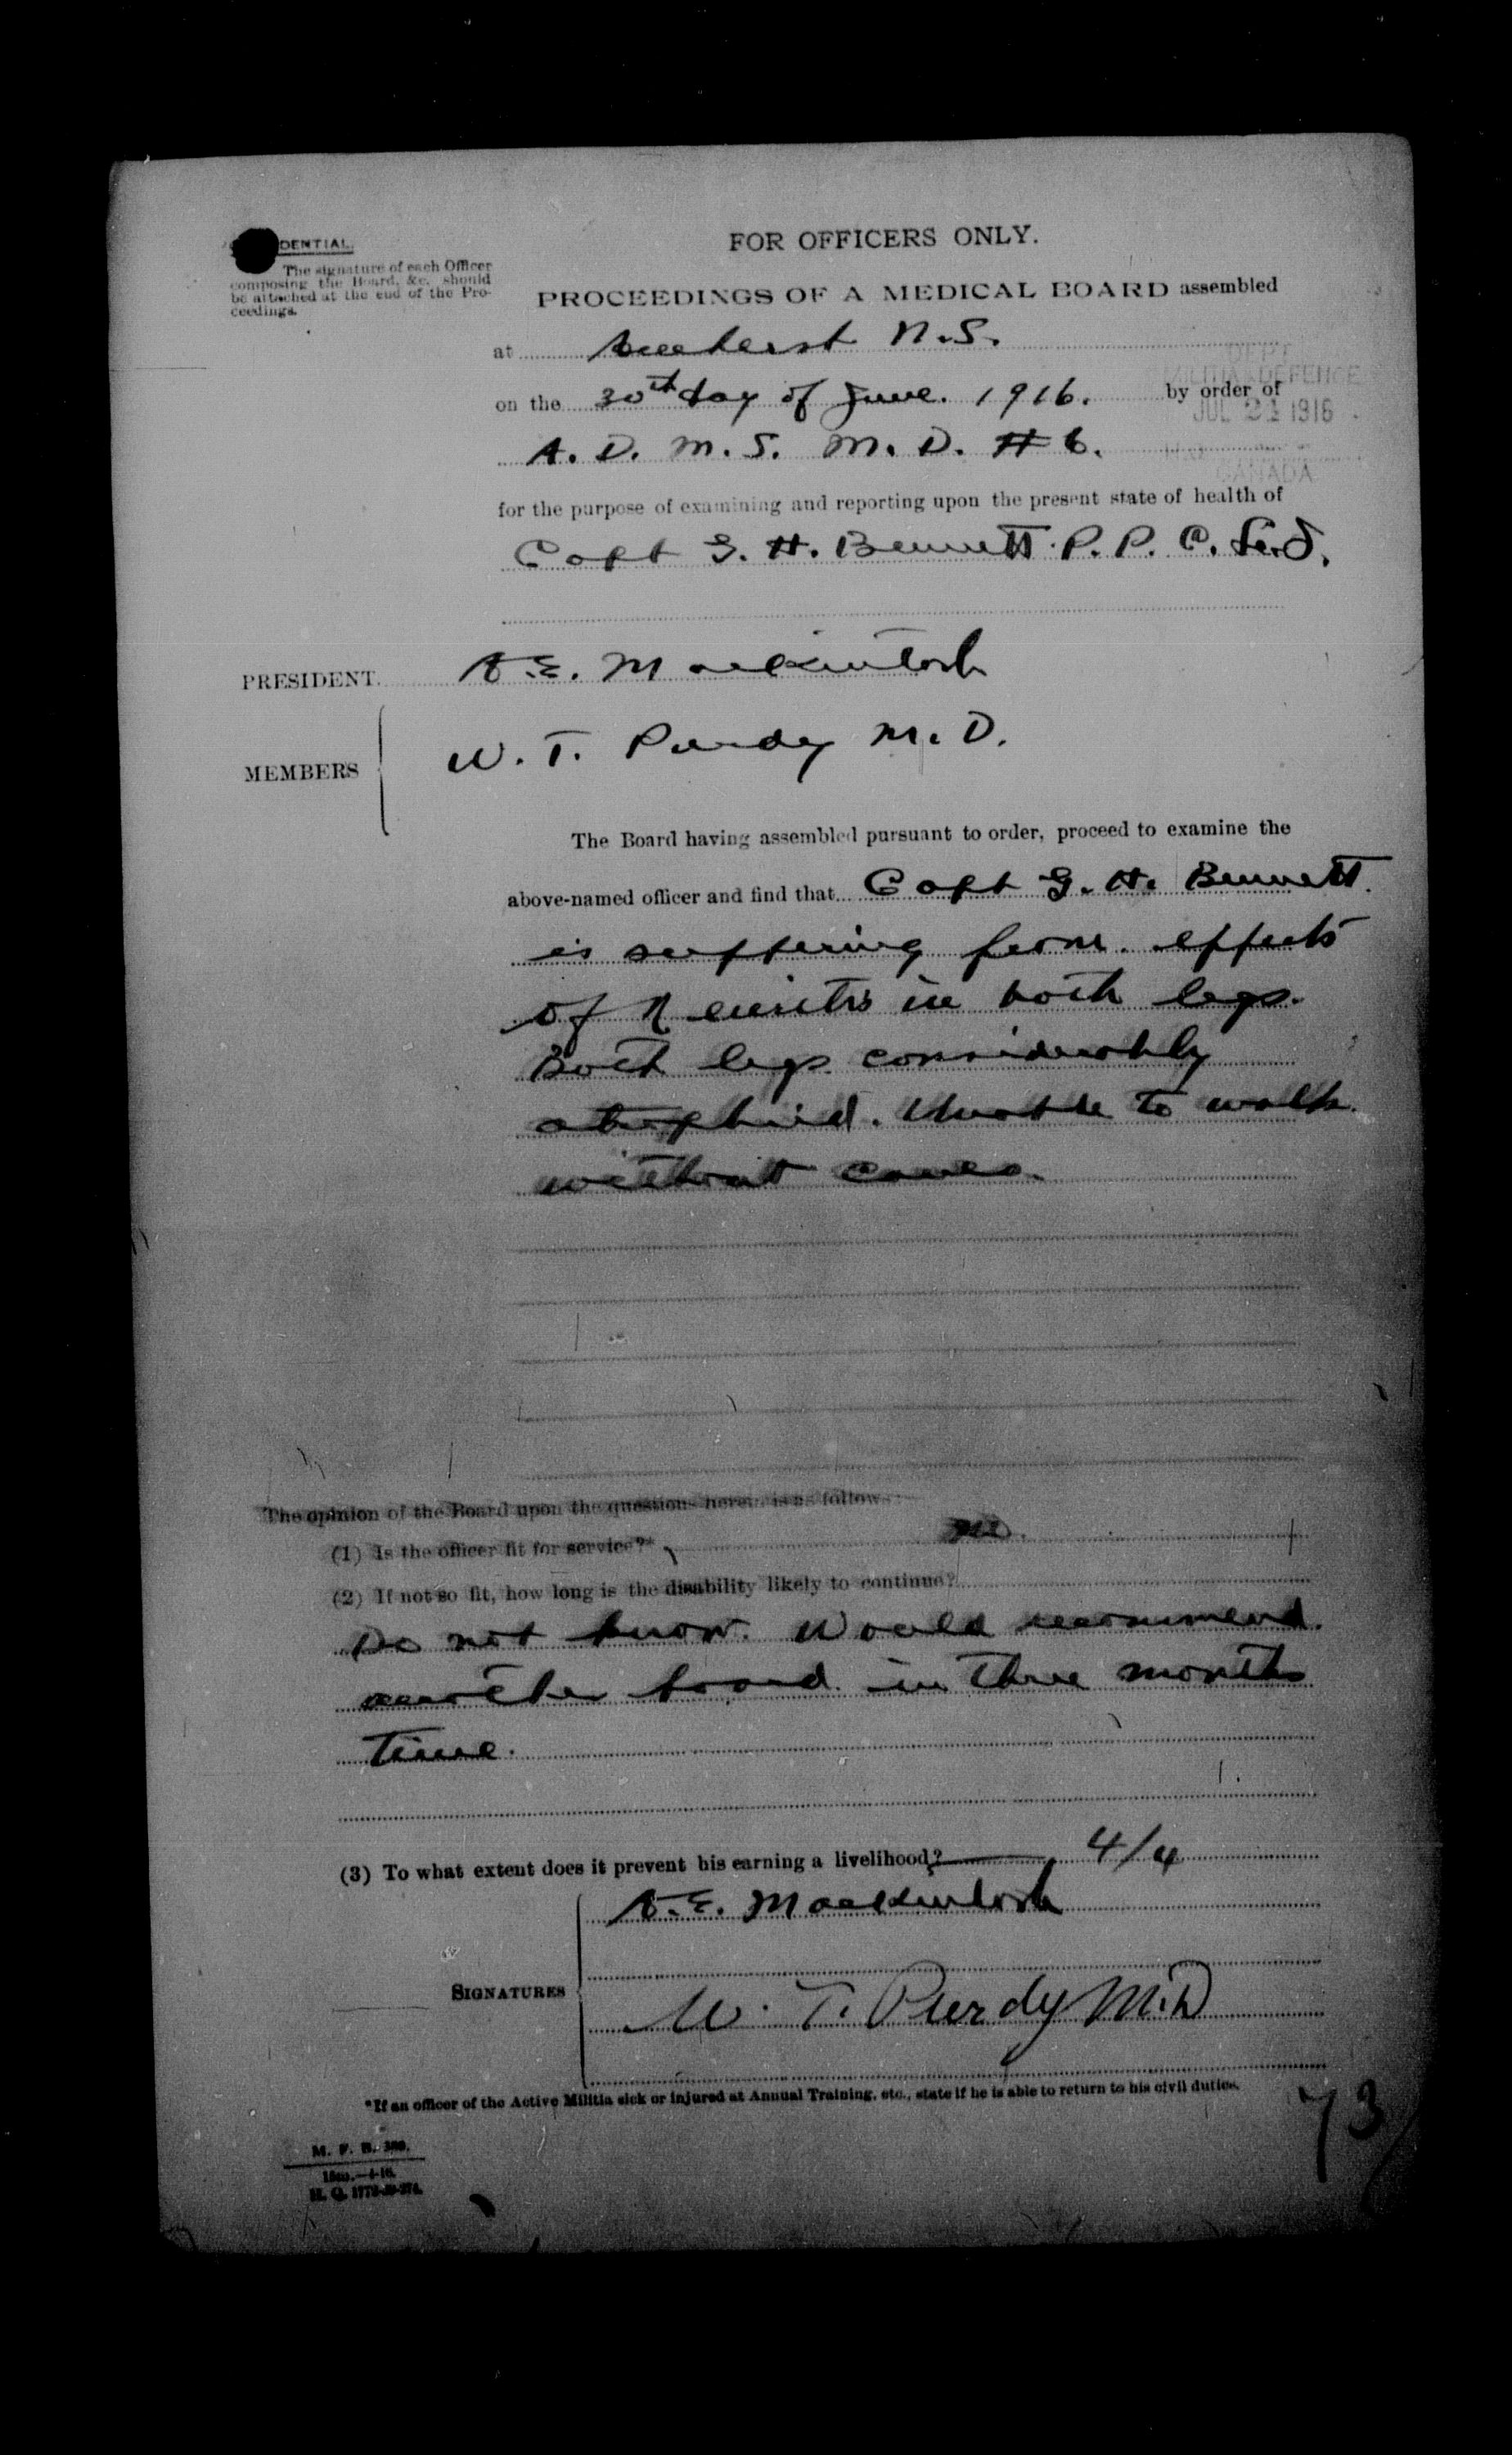 DENTIAL.
The signature of each Officer
composing the Board, &c. should
be attached at the end of the Pro-
ceedings.
FOR OFFICERS ONLY.
PROCEEDINGS OF A MEDICAL BOARD assembled
at Amherst N.S.
on the 30th day of June. 1916. by order of
A. D. M. S. M. D. #6.
DEPT
MILITIA & DEFENCE
JUL 21 1916
CANADA
for the purpose of examining and reporting upon the present state of health of
Capt G. H. Bennett. P. P. C. L.I.
PRESIDENT. A.E. Mackintosh
MEMBERS W. T. Purdy M. D.
The Board having assembled pursuant to order, proceed to examine the
above-named officer and find that Capt G. H. Bennett.
is suffering from effects
of Neuritis in both legs.
Both legs considerably
atrophied. Unable to walk
without canes.
The opinion of the Board upon the questions herein is as follows:—
(1) Is the officer fit for service?* no.
(2) If not so fit, how long is the disability likely to continue?
Do not know. Would recommend
another board in three months
time.
(3) To what extent does it prevent his earning a livelihood? 4/4
A.E. Mackintosh
SIGNATURES
W. T. Purdy M.D
*If an officer of the Active Militia sick or injured at Annual Training, etc., state if he is able to return to his civil duties.
73
M. F. B.
H. Q.